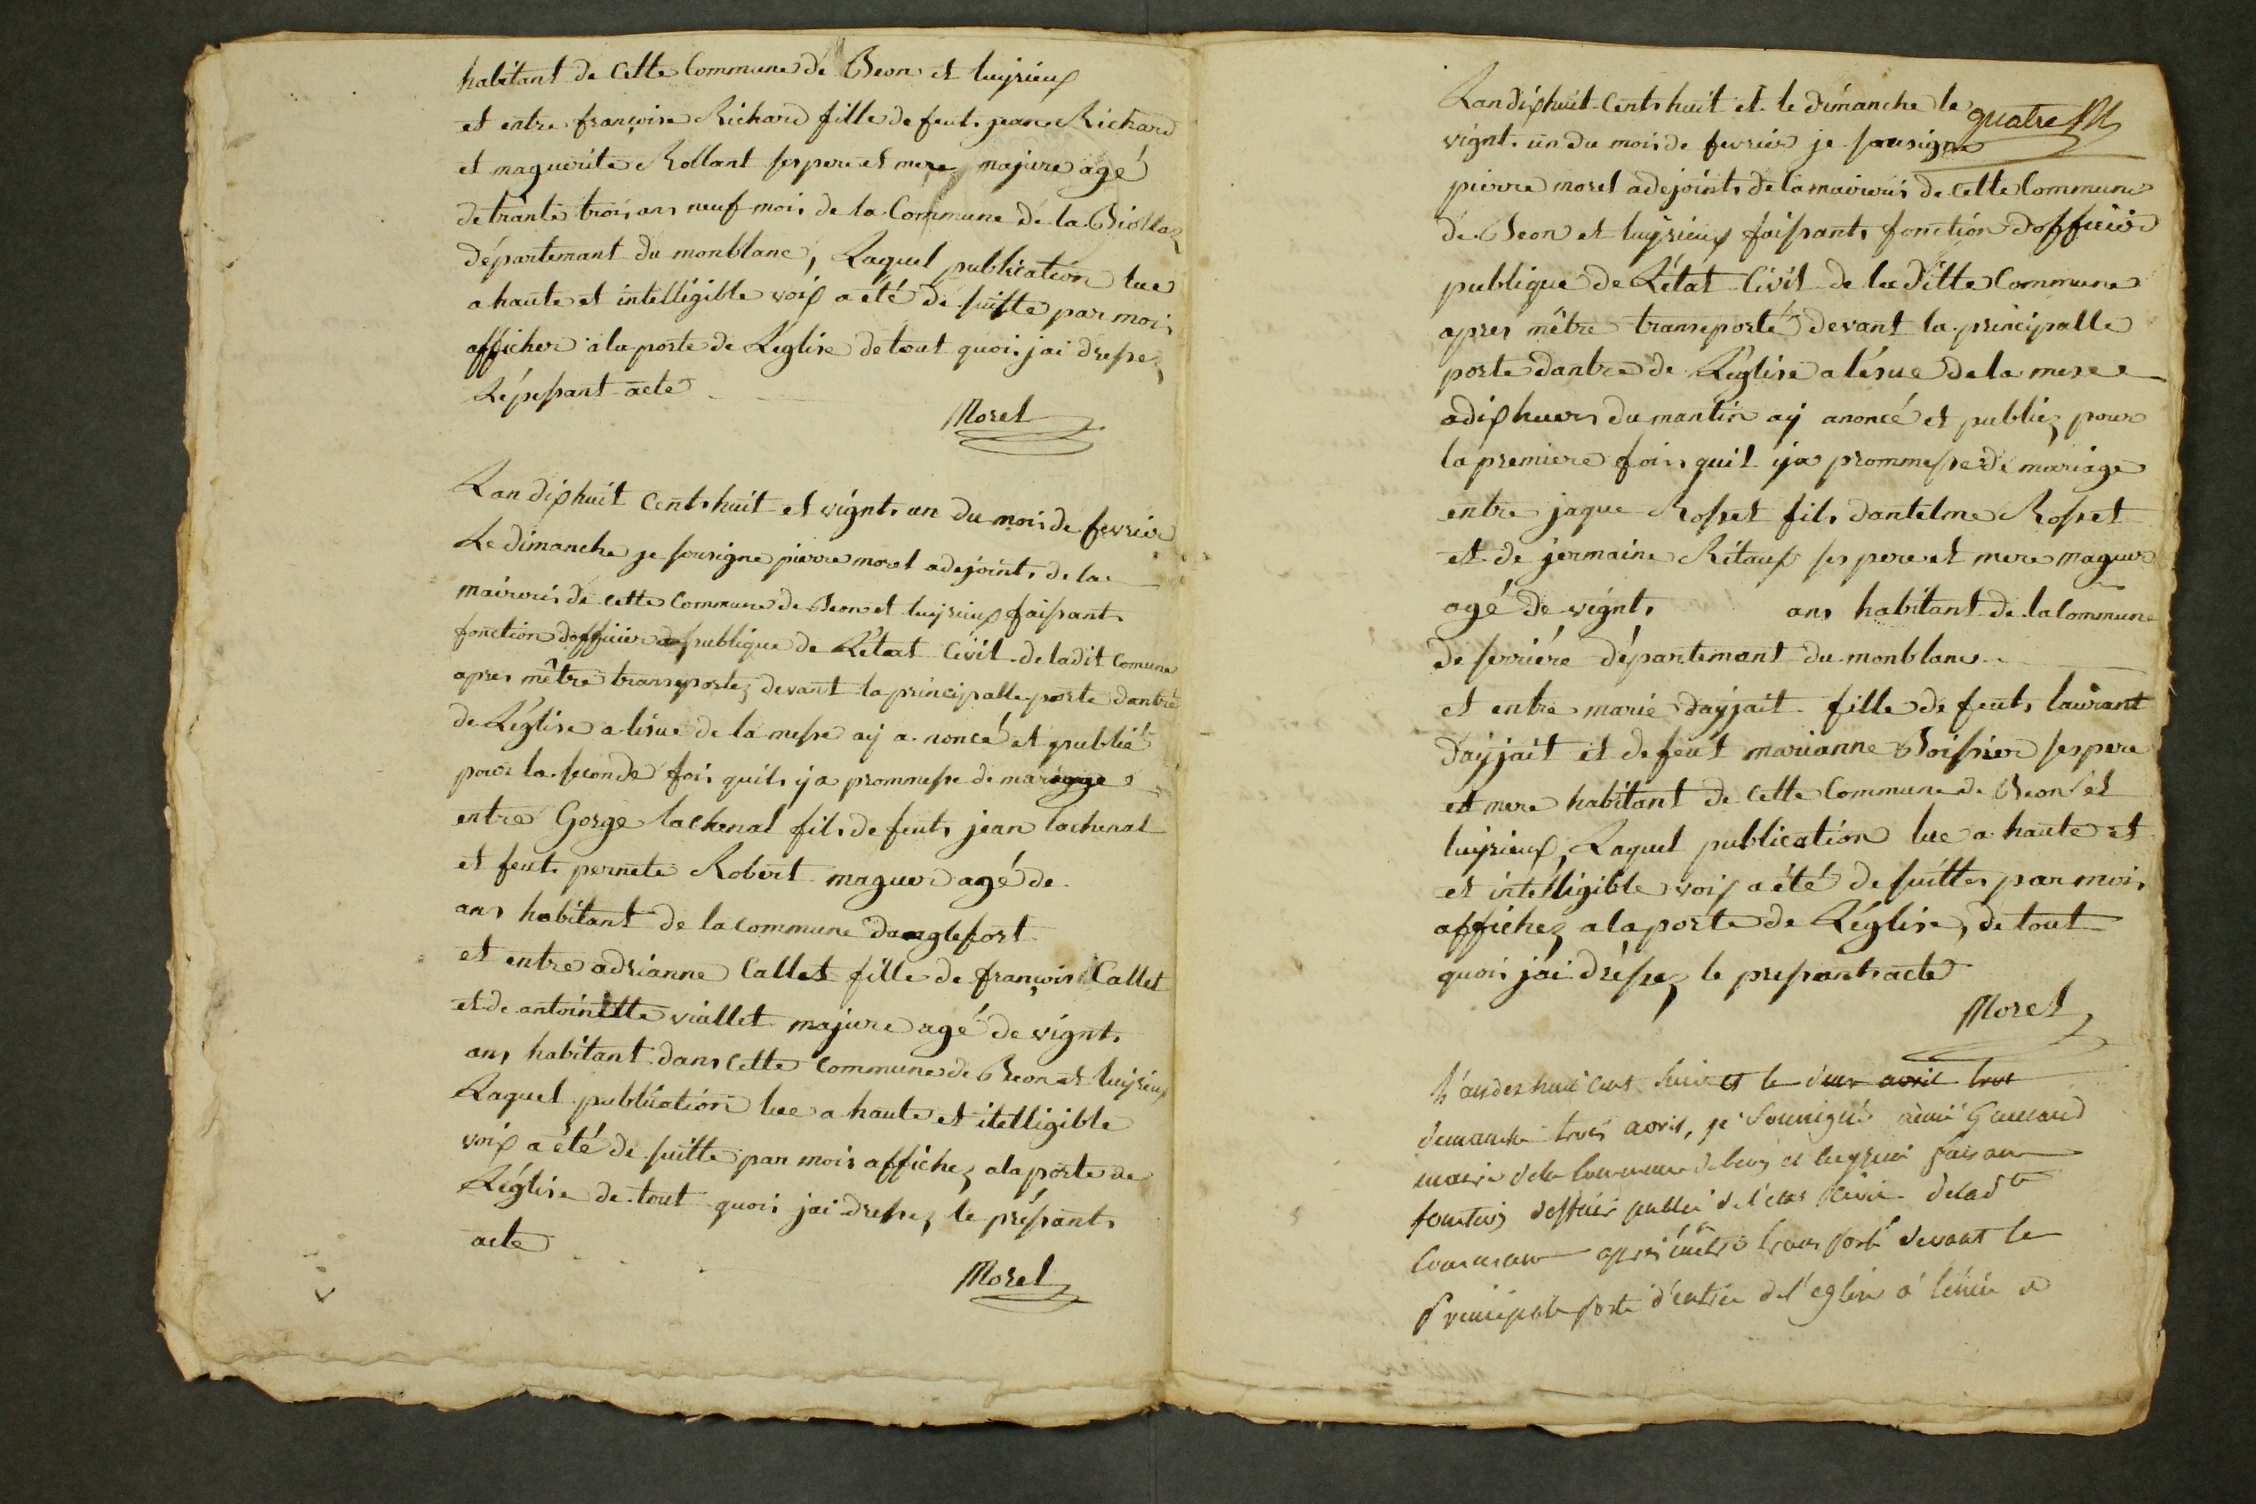 habitant de Cette Commune de Beon et luyrieux
et entre françoise Richard fille de feut jean Richard
et maguerite Rollant ses pere et mere majure agé
de trante trois ans neuf mois de la Commune de la Biollaz
département du monblanc, Laquel publication lue
a haute et intélligible voix a été de suitte par mois
afficher a la porte de Léglise de tout quoi jai dressez
Lépressant acte
Morel
Lan dixhuit Cents huit et vignt un du mois de fevrier
Le dimanche je sousigne pierre morel adejoint de la
mairerie de cette Commune de Beon et luyrieux faissant
fonction dofficier publique de Létat Civil de ladit Comune
apres mêtre transportez devant la principalle porte dantré
de Léglise a lisue de la messe ay anoncé et publié
pour la seconde fois quil ya prommesse de mariage
entre Gorge lachenal fils de feut jean lachenal
et feut pernete Robert mageur agé de
ans habitant de la commune danglefort
et entre adrianne Callet fille de françois Callet
et de antoinette viallet majure agé de vignt
ans habitant dans cette Commune de Beon et luyrieux
Laquel publication lue a haute et itelligible
voix a été de suitte par mois affichez ala porte de
Léglise de tout quoi jai dressez le préssant
acte
Morel
quatre
Lan dixhuit Cents huit et le dimanche le
vignt un du mois de fevrier je sousigne
pierre morel adejoint de la mairerie de cette Commune
de Beon et luyrieux faissant fonction dofficier
publique de Létat Civil de la ditte Commune
apres mêtre transeporté devant la principalle
porte dantre de Léglise a lésue de la mese
a dix heurs du mantin ay anoncé et publiez pour
la premiere fois quil ya prommesse de mariage
entre jaque Rosset fils dantelme Rosset
et de jermaine Ritaux ses pere et mere mageur
agé de vignt ans habitant de la Commune
de serriére département du monblanc
et entre marie dayjait fille de feut laurant
dayjait et de feut marianne Boissier ses pere
et mere habitant de cette Commune de Beon et
luyrieux, Laquel publication lue a haute et
et intélligible voix a été de suitte par mois
affichez a la porte de Léglise, de tout
quoi jai dréssez le pressant acte
Morel
L'an dix huit cent huit et le deux avril trois
dimanche trois avril, je Soussigné aimé
maire de la Commune de beon et luyrieu faisant
fonction d'officier public de l'etat civil de lad te
Commune après m'être transporté devant la
Principale porte d'entrée de l'eglise à l'issue de